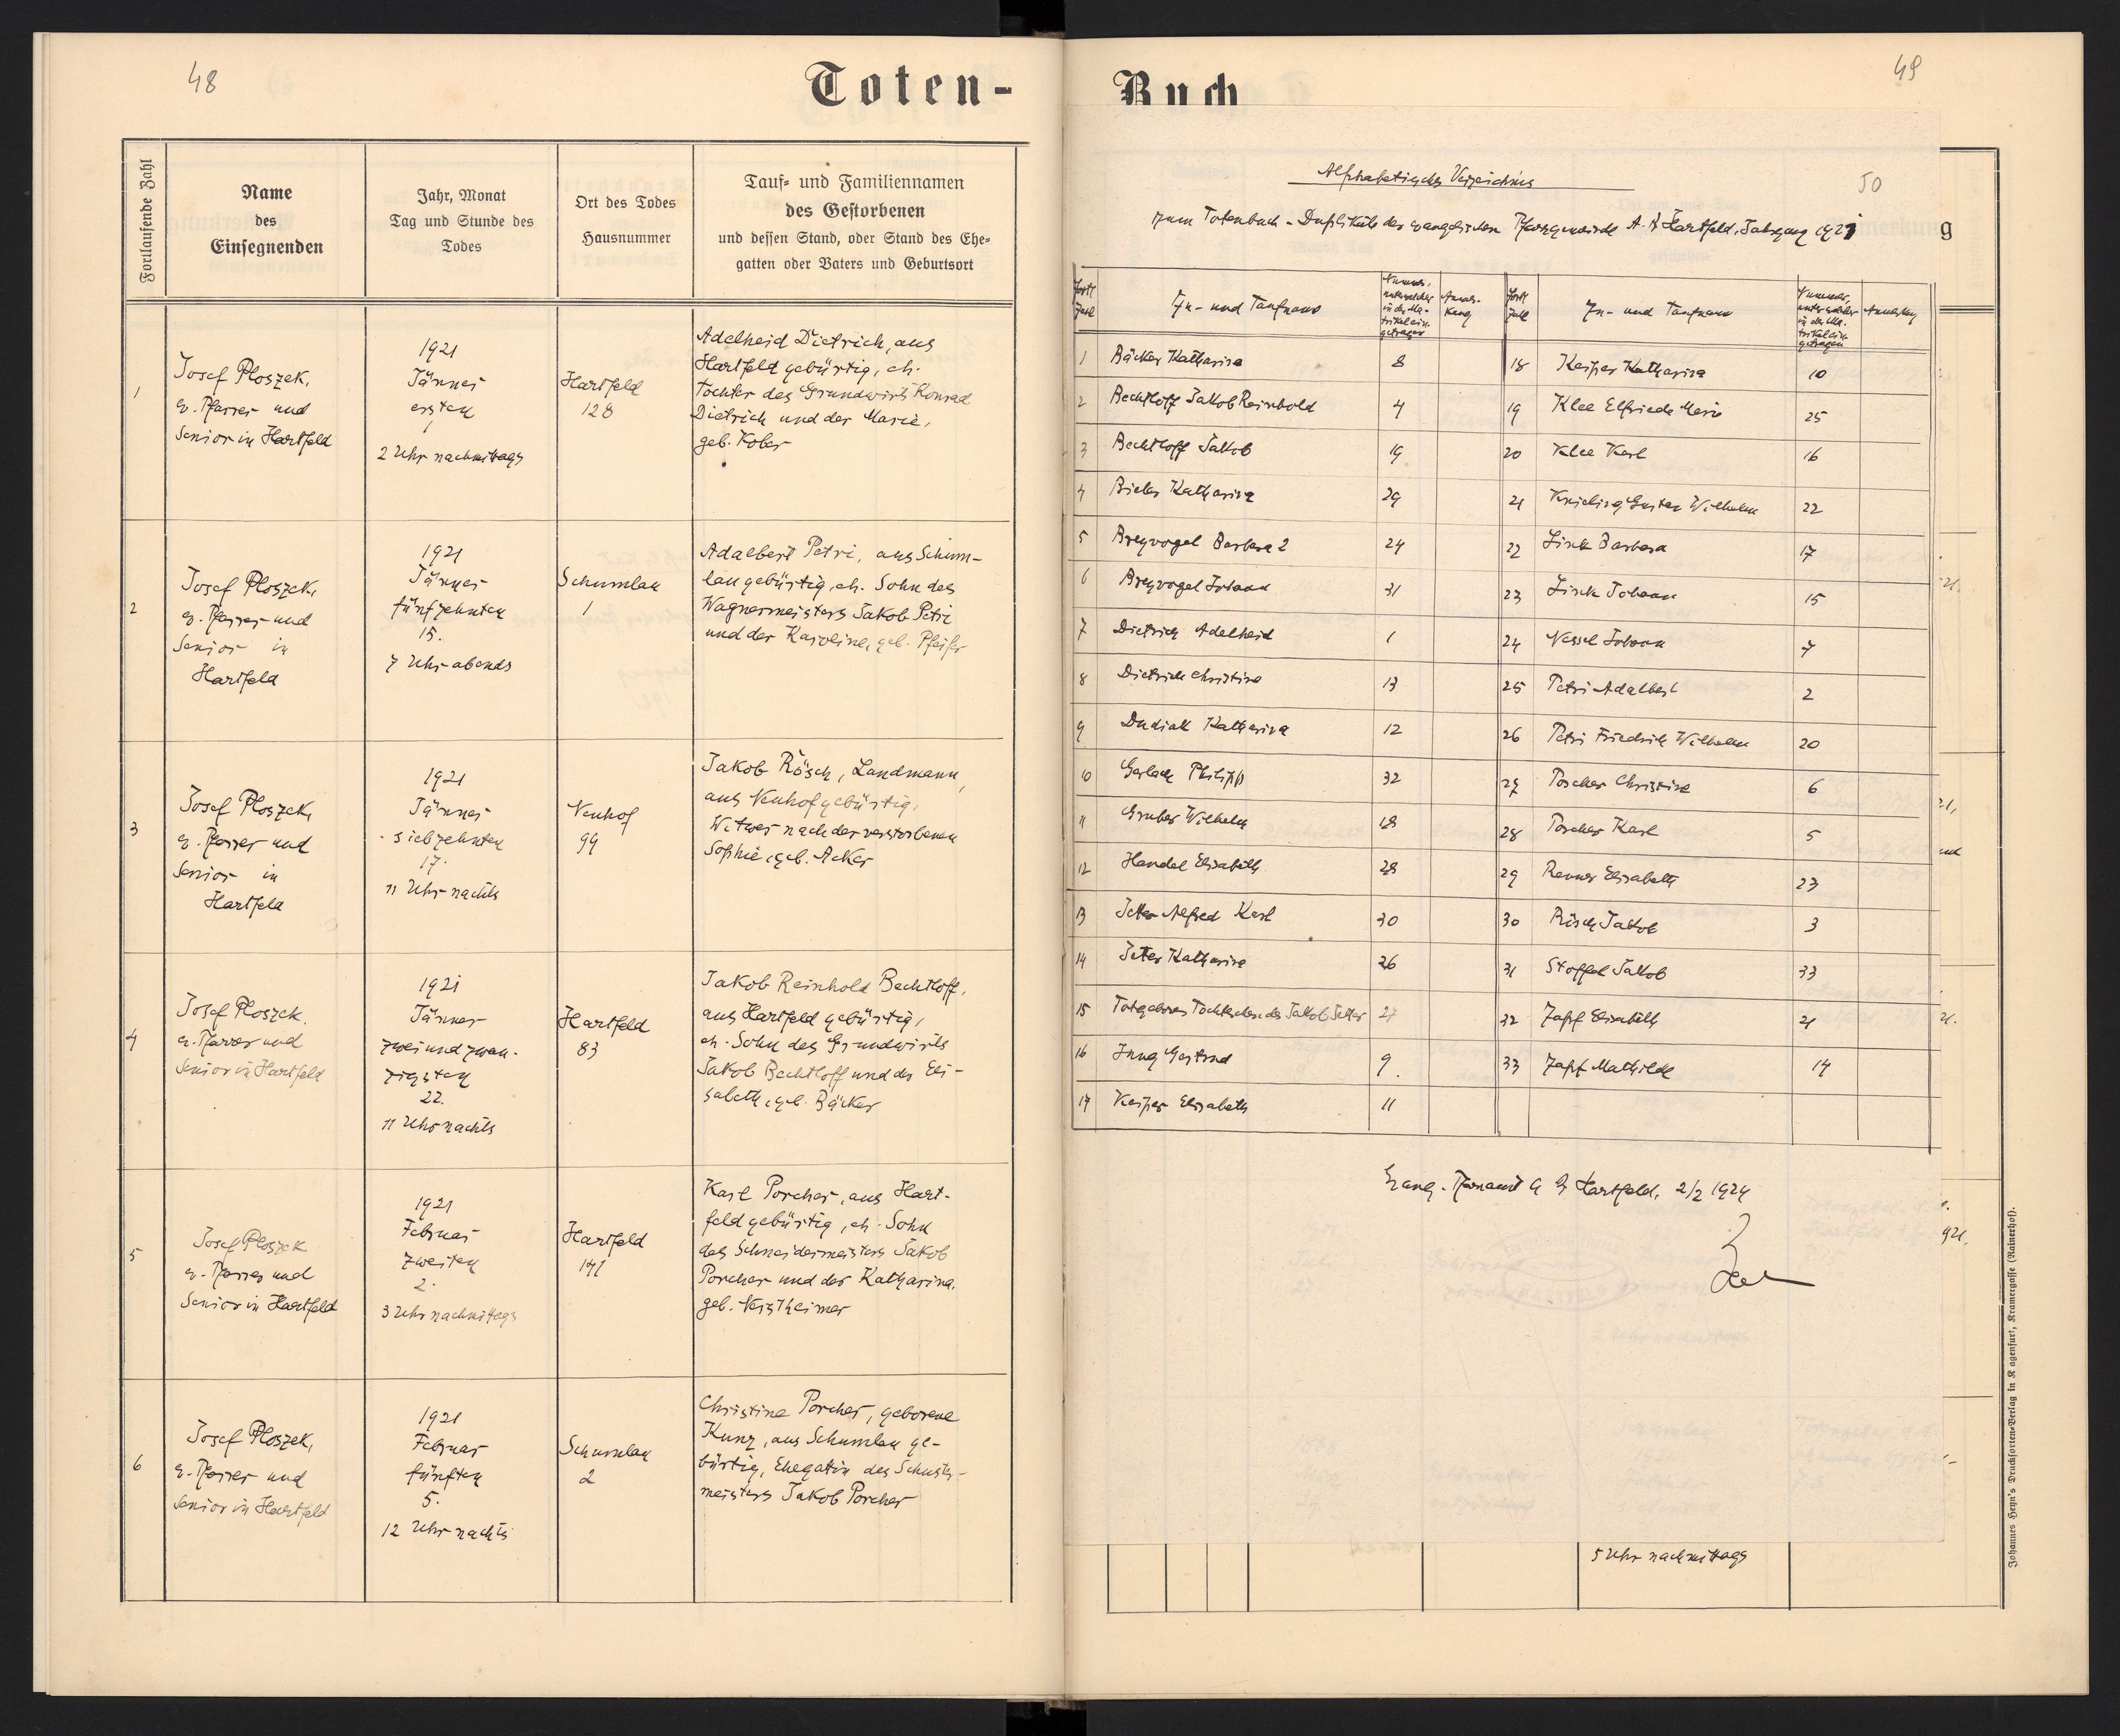 48
Toten-
Fortlaufende Zahl
Name
des
Einsegnenden
Jahr, Monat
Tag und Stunde des
Todes
Ort des Todes
Hausnummer
Tauf- und Familiennamen
des Gestorbenen
und dessen Stand, oder Stand des Ehe-
gatten oder Vaters und Geburtsort
1
Josef Ploszek,
ev. Pfarrer und
Senior in Hartfeld
1921
Jänner
ersten
1
2 Uhr nachmittags
Hartfeld
128
Adelheid Dietrich, aus
Hartfeld gebürtig, eh.
Tochter des Grundwirts Konrad
Dietrich und der Marie,
geb. Kober
2
Josef Ploszek,
ev. Pfarrer und
Senior in
Hartfeld
1921
Jänner
fünfzehnten
15.
7 Uhr abends
Schumlau
1
Adalbert Petri, aus Schum-
lau gebürtig, eh. Sohn des
Wagnermeisters Jakob Petri
und der Karoline, geb. Pfeifer
3
Josef Ploszek,
ev. Pfarrer und
Senior in
Hartfeld
1921
Jänner
siebzehnten
17.
11 Uhr nachts
Neuhof
99
Jakob Rösch, Landmann,
aus Neuhof gebürtig,
Witwer nach der verstorbenen
Sophie, geb. Acker
4
Josef Ploszek,
ev. Pfarrer und
Senior in Hartfeld
1921
Jänner
zweiundzwan-
zigsten
22.
11 Uhr nachts
Hartfeld
83
Jakob Reinhold Bechtloff,
aus Hartfeld gebürtig,
eh. Sohn des Grundwirts
Jakob Bechtloff und der Eli-
sabeth, geb. Bäcker
5
Josef Ploszek
ev. Pfarrer und
Senior in Hartfeld
1921
Februar
zweiten
2.
3 Uhr nachmittags
Hartfeld
141
Karl Porcher, aus Hart-
feld gebürtig, eh. Sohn
des Schneidermeisters Jakob
Porcher und der Katharina,
geb. Neistheimer
6
Josef Ploszek,
ev. Pfarrer und
Senior in Hartfeld
1921
Februar
fünften
5.
12 Uhr nachts
Schumlau
2
Christine Porcher, geborene
Kunz, aus Schumlau ge-
bürtig, Ehegatin des Schuster-
meisters Jakob Porcher
49
Buch
50
Alphabetisches Verzeichnis
zum Totenbuch-Duplikate der evangelischen Pfarrgemeinde A. B. Hartfeld, Jahrgang 1921
g
Fortl. Zahl
Zu- und Taufname
Nummer, unter welcher in der Matrikel eingetragen
Anmerkung
Fortl. Zahl
Zu- und Taufname
Nummer, unter welcher in der Matrikel eingetragen
Anmerkung
1 Bäcker Katharina 8
2 Bechtloff Jakob Reinhold 4
3 Bechtloff Jakob 19
4 Bieber Katharina 29
5 Breyvogel Barbara 24
6 Breyvogel Johann 31
7 Dietrich Adelheid 1
8 Dietrich Christine 13
9 Dudiak Katharina 12
10 Gerlach Philipp 32
11 Gruber Wilhelm 18
12 Handel Elisabeth 28
13 Jetter Alfred Karl 30
14 Jetter Katharina 26
15 Totgeborenes Töchterchen des Jakob Jetter 27
16 Jung Gertrud 9.
17 Keiper Elisabeth 11
18 Keiper Katharina 10
19 Klee Elfriede Marie 25
20 Klee Karl 16
21 Knieling Gustav Wilhelm 22
22 Link Barbara 17
23 Link Johann 15
24 Nessel Johann 7
25 Petri Adalbert 2
26 Petri Friedrich Wilhelm 20
27 Porcher Christine 6
28 Porcher Karl 5
29 Renner Elisabeth 23
30 Rösch Jakob 3
31 Stoffel Jakob 33
32 Zapf Elisabeth 21
33 Zapf Mathilde 14
Evang. Pfarramt A B Hartfeld, 2/2 1924
5 Uhr nachmittags
Johannes Heyn's Drucksorten-Verlag in Klagenfurt, Kramergasse (Rainerhof).